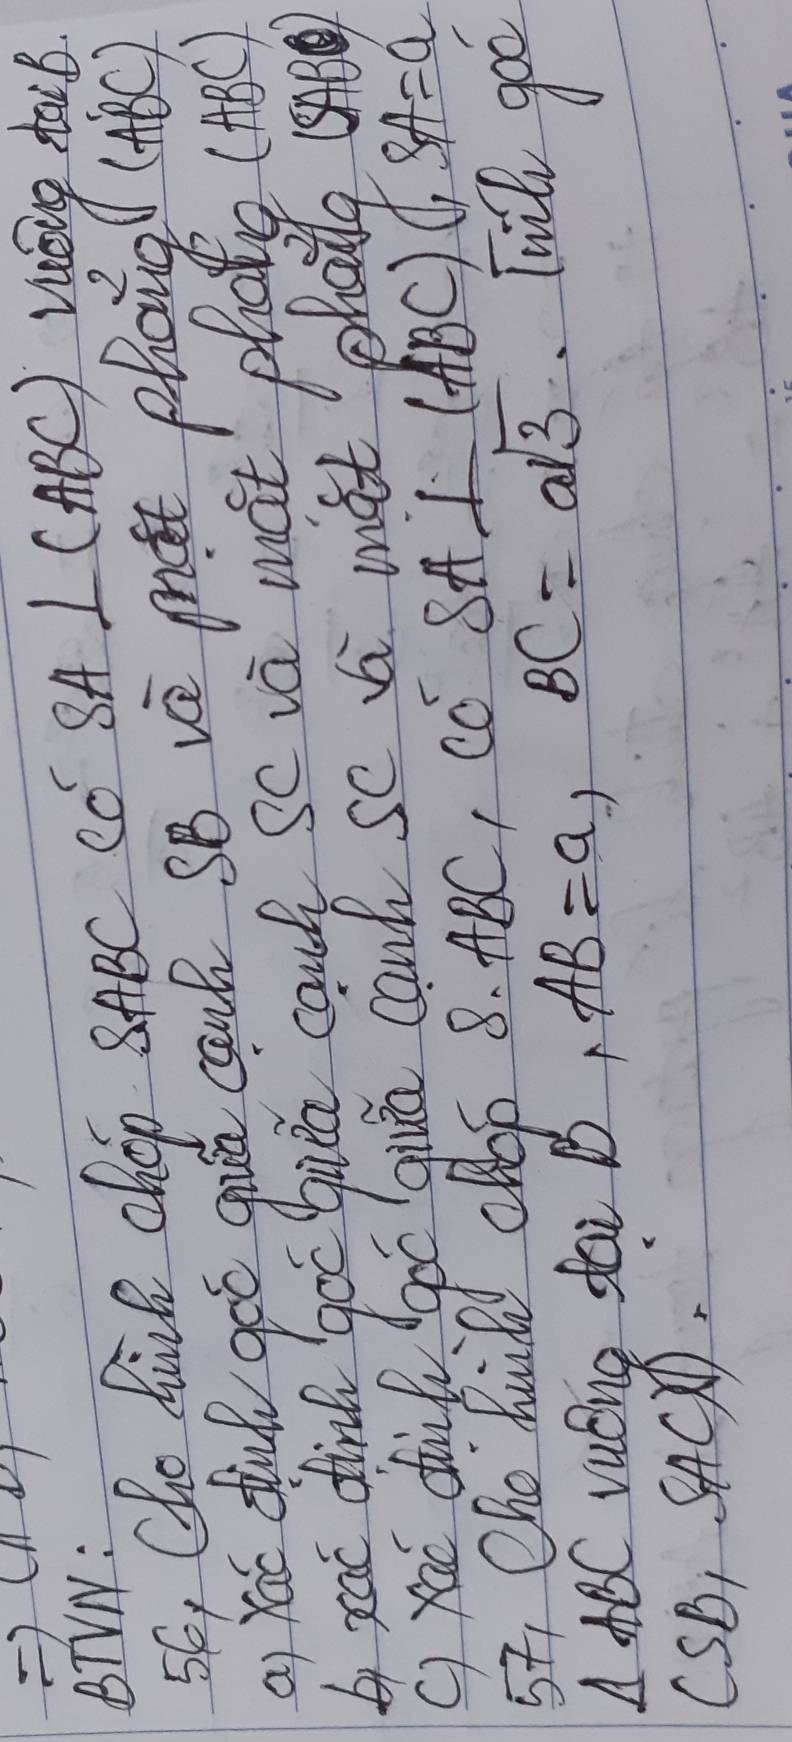 BTVN:
56, Cho hình chóp SABC có SA ⊥ (ABC) vuông tại B.
a) Xác định góc giữa cạnh SB và mặt phẳng (ABC)
b, xác định góc giữa cạnh SC và mặt phẳng (ABC)
c) Xác định góc giữa cạnh SC và mặt phẳng (SAB)
57, Cho hình chóp S.ABC, có SA ⊥ (ABC), SA = a
Δ ABC vuông tại B, AB = a, BC = a√3. Tính góc
(SB, SAC).